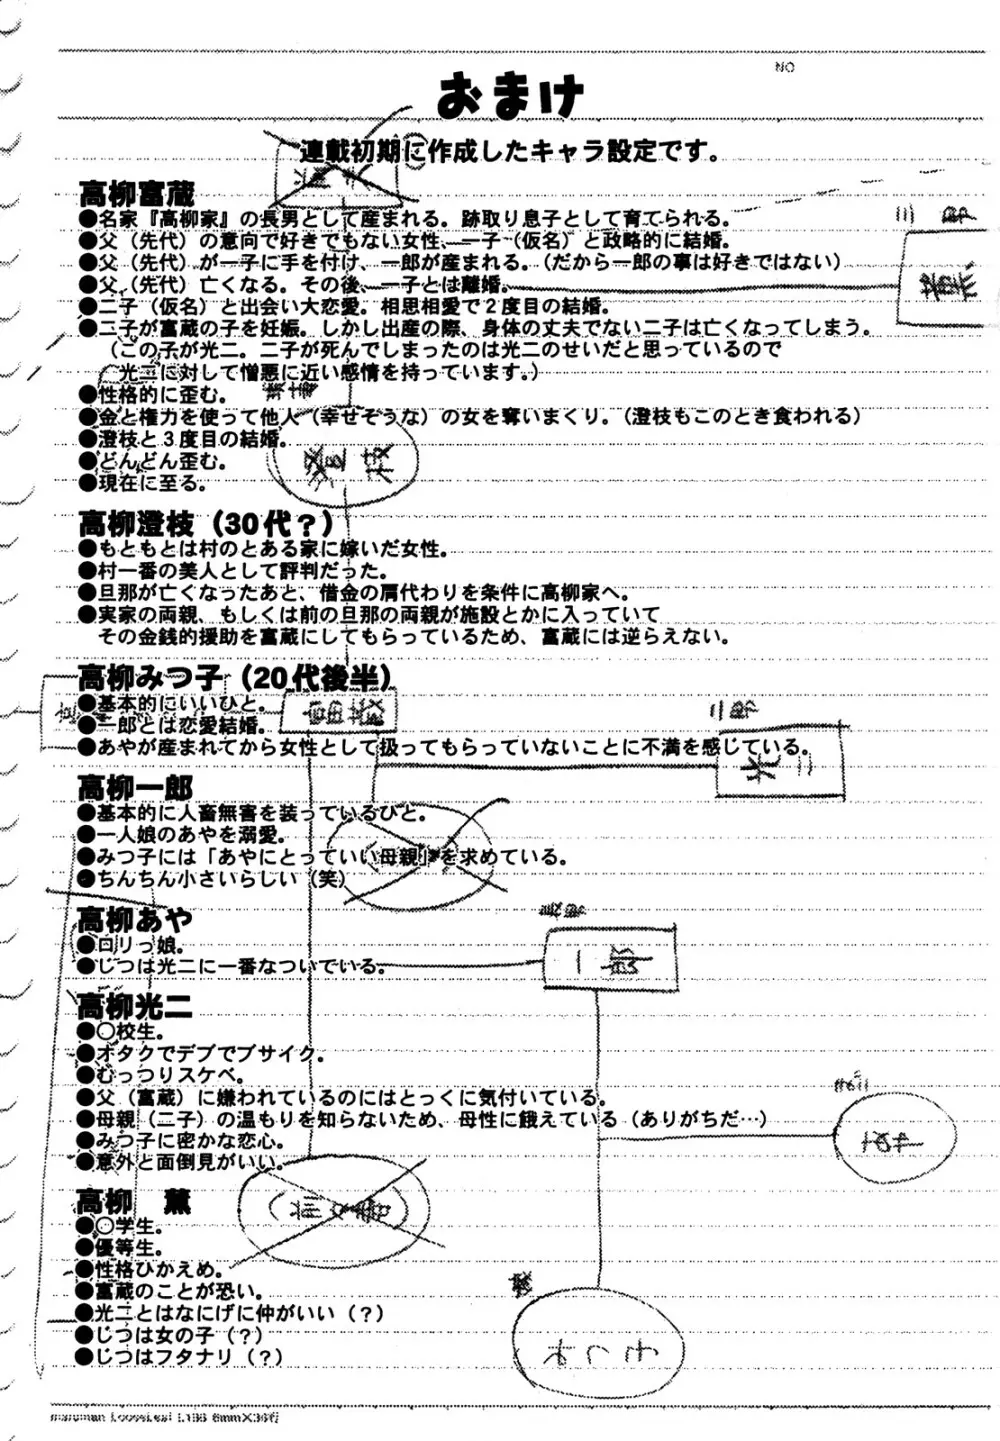 NO
おまけ
連載初期に作成したキャラ設定です。
高柳富蔵
●名家『高柳家』の長男として産まれる。跡取り息子として育てられる。
●父（先代）の意向で好きでもない女性、一子（仮名）と政略的に結婚。
●父（先代）が一子に手を付け、一郎が産まれる。（だから一郎の事は好きではない）
●父（先代）亡くなる。その後、一子とは離婚。
●二子（仮名）と出会い大恋愛。相思相愛で２度目の結婚。
●二子が富蔵の子を妊娠。しかし出産の際、身体の丈夫でない二子は亡くなってしまう。
（この子が光二。二子が死んでしまったのは光二のせいだと思っているので
光二に対して憎悪に近い感情を持っています。）
●性格的に歪む。
●金と権力を使って他人（幸せそうな）の女を奪いまくり。（澄枝もこのとき食われる）
●澄枝と３度目の結婚。
●どんどん歪む。
●現在に至る。
澄枝
高柳澄枝（30代？）
●もともとは村のとある家に嫁いだ女性。
●村一番の美人として評判だった。
●旦那が亡くなったあと、借金の肩代わりを条件に高柳家へ。
●実家の両親、もしくは前の旦那の両親が施設とかに入っていて
その金銭的援助を富蔵にしてもらっているため、富蔵には逆らえない。
高柳みつ子（20代後半）
●基本的にいいひと。
●一郎とは恋愛結婚。
●あやが産まれてから女性として扱ってもらっていないことに不満を感じている。
富蔵
二郎
光二
高柳一郎
●基本的に人畜無害を装っているひと。
●一人娘のあやを溺愛。
●みつ子には「あやにとっていい母親」を求めている。
●ちんちん小さいらしい（笑）
高柳あや
●ロリっ娘。
●じつは光二に一番なついでいる。
長男
一郎
高柳光二
●○校生。
●オタクでデブでブサイク。
●むっつりスケベ。
●父（富蔵）に嫌われているのにはとっくに気付いている。
●母親（二子）の温もりを知らないため、母性に餓えている（ありがちだ…）
●みつ子に密かな恋心。
●意外と面倒見がいい。
高柳　薫
●○学生。
●優等生。
●性格ひかえめ。
●富蔵のことが恐い。
●光二とはなにげに仲がいい（？）
●じつは女の子（？）
●じつはフタナリ（？）
maruman LooseLeaf L1